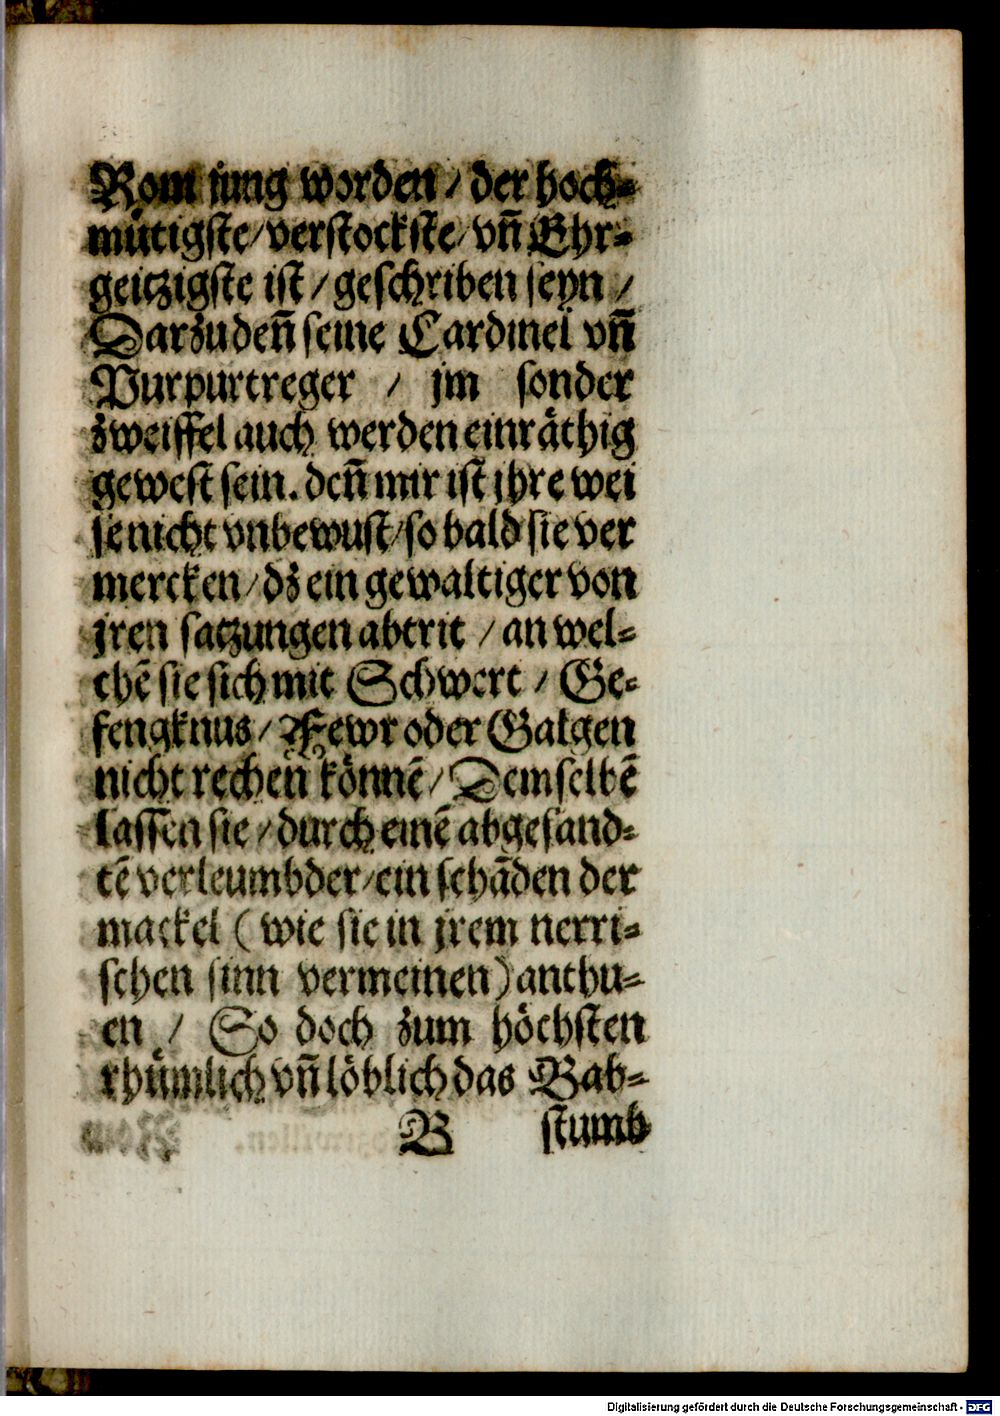 Rom jung worden / der hoch-
mütigste / verstockste / vn̄ Ehr-
geitzigste ist / geschriben seyn /
Darzu den̄ seine Cardinel vn̄
Purpurtreger / jm sonder
zweiffel auch werden einräthig
gewest sein. den̄ mir ist jhre wei
se nicht vnbewust / so bald sie ver
mercken / dz ein gewaltiger von
jren satzungen abtrit / an wel-
chē sie sich mit Schwert / Ge-
fengknus / Fewr oder Galgen
nicht rechen könnē / Demselbē
lassen sie / durch einē abgesand-
tē verleumbder / ein schāden der
mackel ( wie sie in jrem nerri-
schen sinn vermeinen ) anthu-
en / So doch zum höchsten
rhümlich vn̄ löblich das Bab-
B stumb
Digitalisierung gefördert durch die Deutsche Forschungsgemeinschaft - DFG